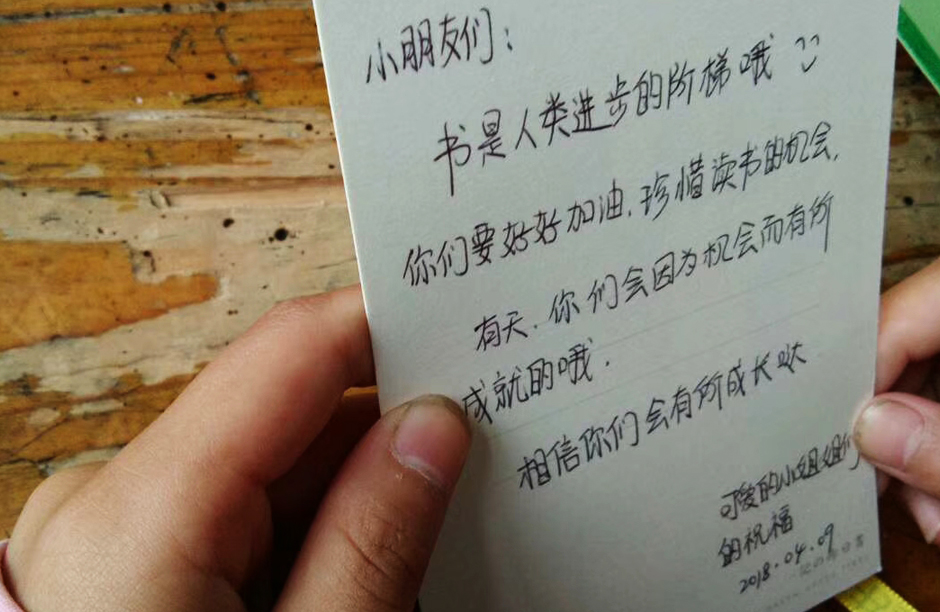 小朋友们：
书是人类进步的阶梯哦
你们要好好加油，珍惜读书的机会，
有天，你们会因为机会而有所
成就的哦．
相信你们会有所成长哒
可爱的小姐姐们
的祝福
2018.04.09